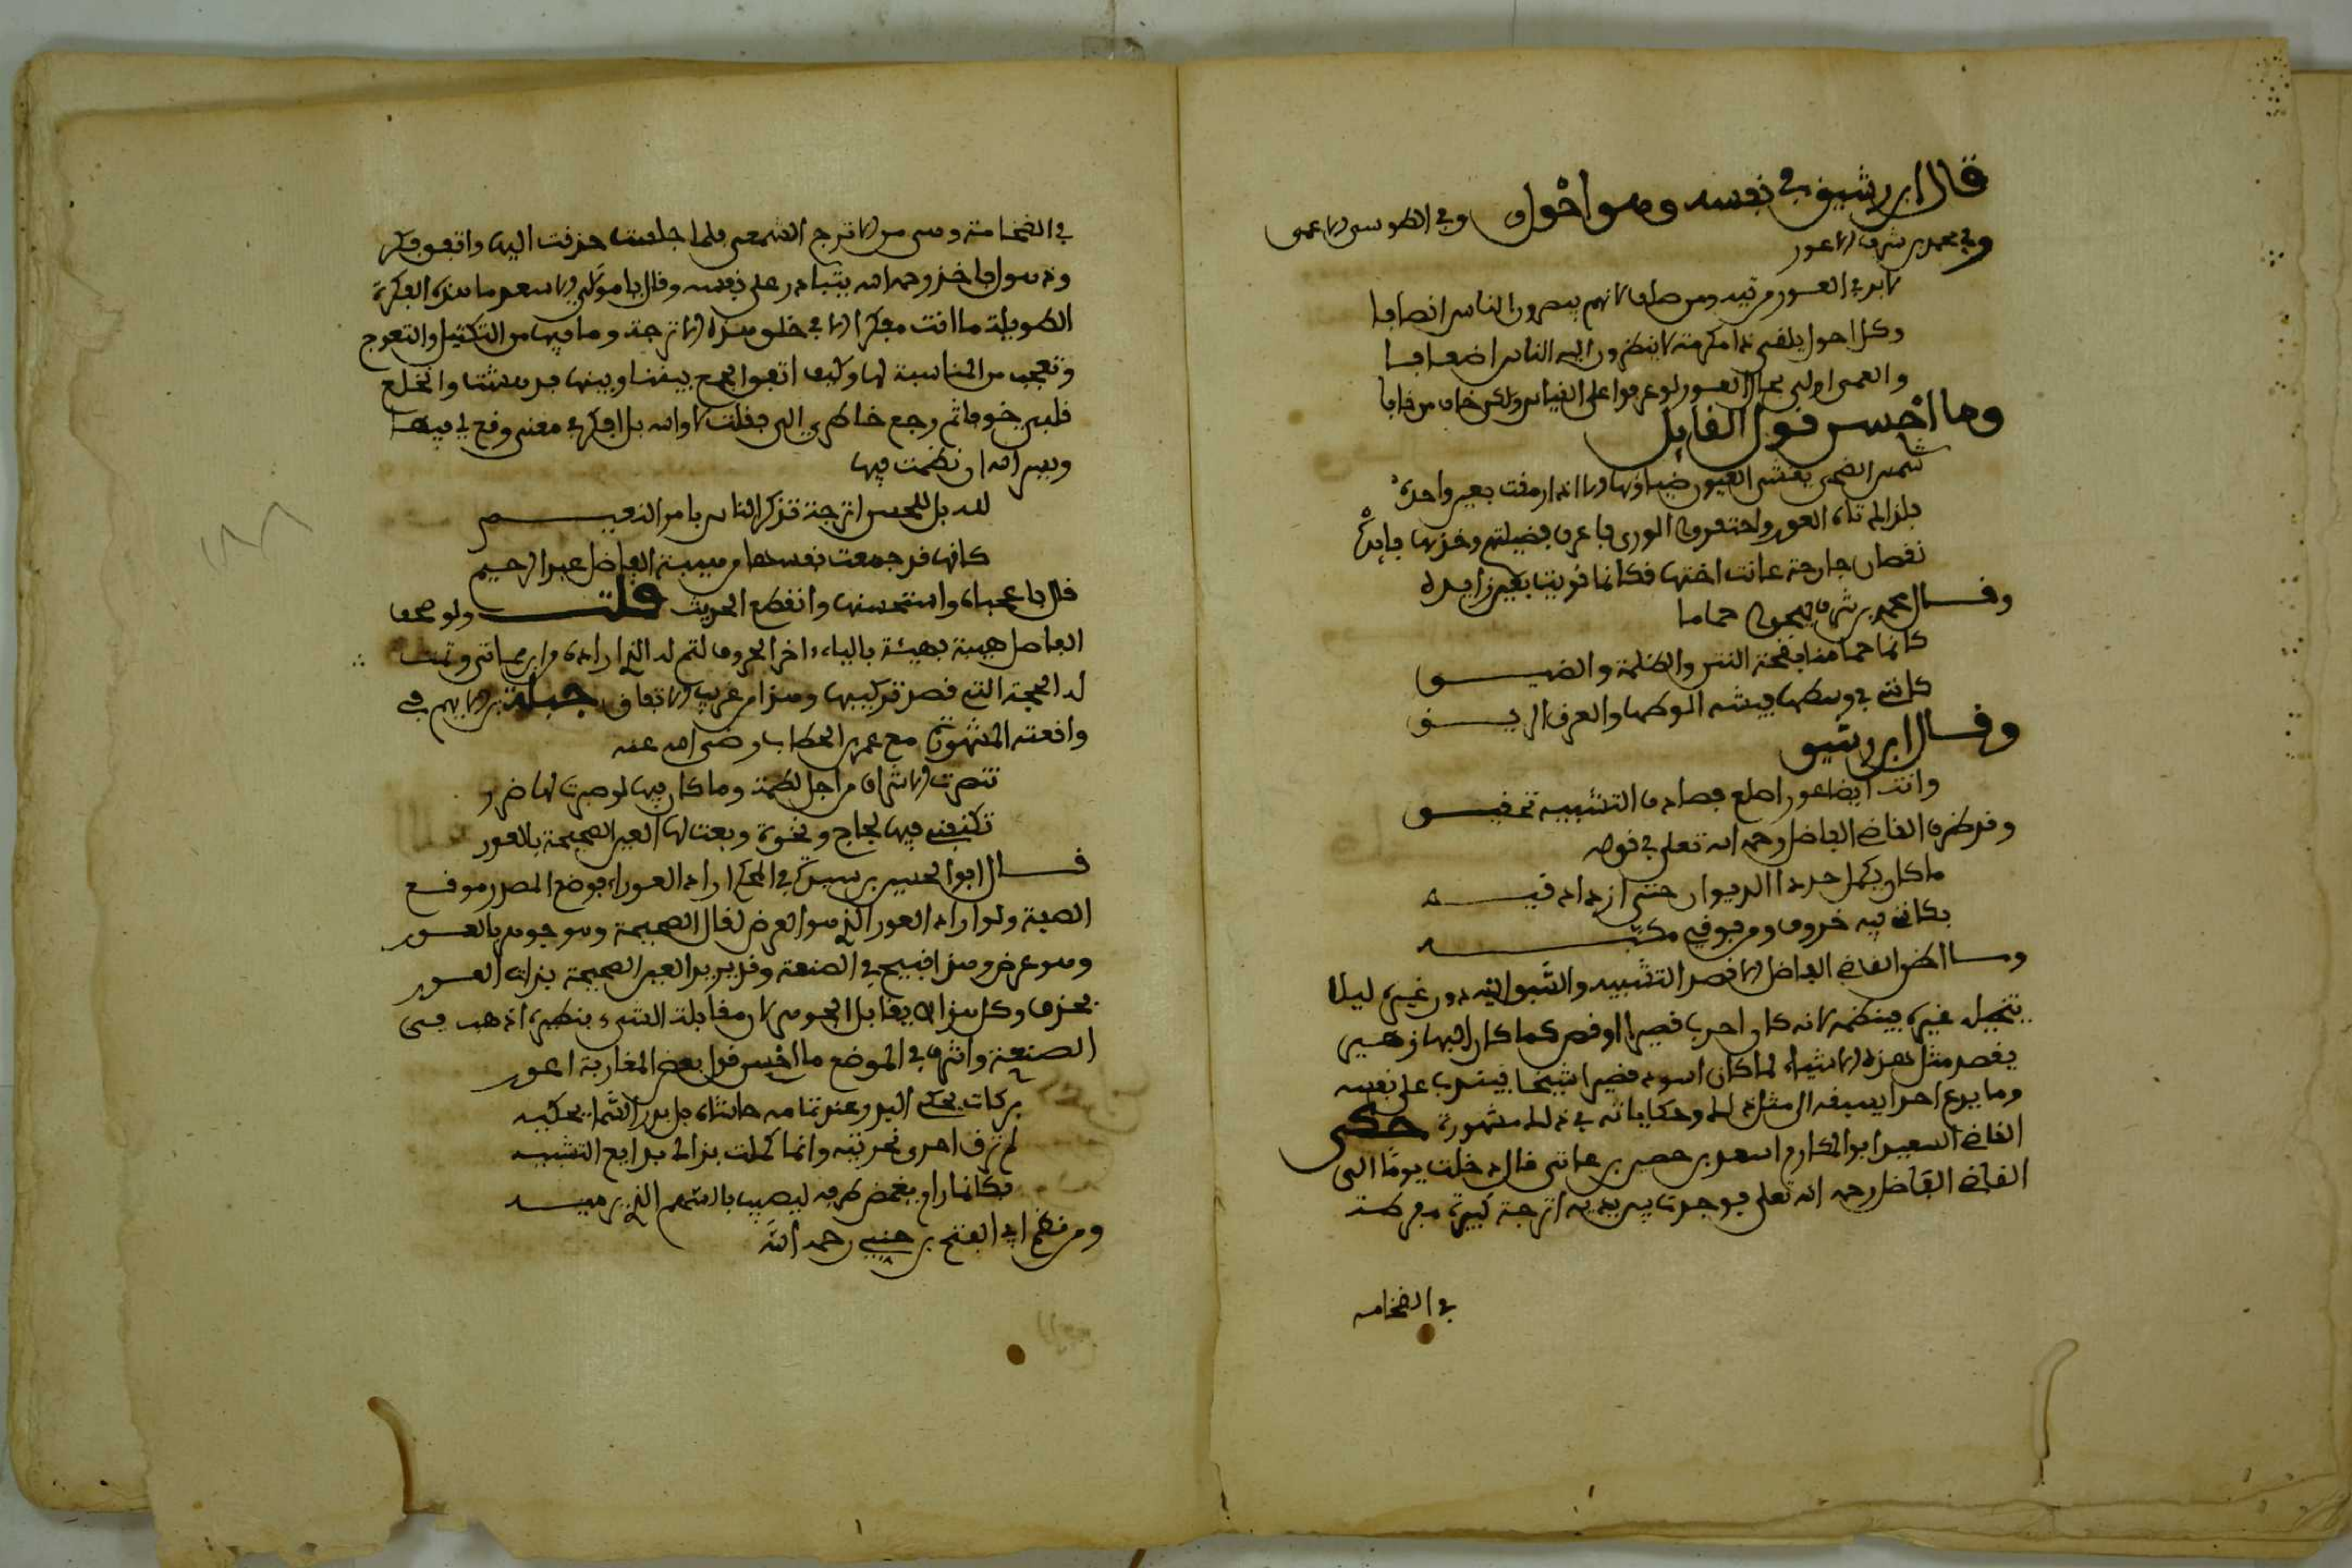 قال ابن رشيق في نفسه وهو احول وفي الطوسي الاعمى
وفي محمد بن شرف الاعور
لا بد في العور من تيه ومن صلف لانهم يبصرون الناس انصافا
وكل احول يلفى ذا مكرمة لانه ينظرون اليه الناس اضعافا
والعمي اولى بحال العور لو عرفوا على القياس ولكن خاف من خافا
وما احسن قول القايل
شمس الضحى يعشي العيون ضياوها الا اذا رمقت بعين واحدة
فلذاك تاه العور واحتقروا الورى فاعرف فضيلتهم وخذها فايدة
نقصان جارحة اعانت اختها فكانما قويت بعين زايدة
وقال محمد بن شرف يهجو حماما
كانما حمامنا فقحة النتن والظلمة والضيق
كانني في وسطها فيشة الوطها والعرق الريق
وقال ابن رشيق
وانت ايضا اعور اصلع فصادف التشبيه تحقيق
وقد ظرف القاضي الفاضل رحمه الله تعالى في قوله
ما كان يكمل حر ذا الديوان حتى ازداد فيه
فكانه فيه خروف ومن فوقه مكبه
وما اظن القاضي الفاضل الا قصد التشبيه دون غيره ليلا
يتخيل غيره فينظمه لانه كان احدب قصيرا اوقص كما كان البها زهير
يقصد مثل هذه الاشياء لما كان اسود قصيرا شيخا فيندب على نفسه
وما يدع احدا يسبقه الى مثل ذلك وحكاياته في ذلك مشهورة حكى
القاضي السعيد ابو المكارم اسعد بن خطير بن مماتي قال دخلت يوما الى
القاضي الفاضل رحمه الله تعالى فوجدت بين يديه اترجة كبيرة مفرطة
في الضخامه
في الضخامة وهي من الاترج الشمعي فلما جلست حدقت اليها واتفق فكر
وذهول فاخذ رحمه الله يتنادر على نفسه وقال يا مولاي الاسعد ما هذه الفكرة
الطويلة ما انت مفكرا الا في خلق هذه الاترجة وما فيها من التكتيل والتعوج
وتعجب من المناسبة لها وكيف اتفق الجمع بيننا وبينها فدهشت وانخلع
قلبي خوفا ثم رجع خاطري الي فقلت لا والله بل افكر في معنى وقع لي فيها
ويسر الله ان نظمت فيها
لله بل للحسن اترجة تذكر الناس بامر النعيم
كانها قد جمعت نفسها من هيبة الفاضل عبد الرحيم
قال فاعجباه واستحسنها وانقطع الحديث قلت ولو صحف
الفاضل هيبة بهيئة بالياء اخر الحروف لتم له الذي اراده من ابن مماتي وتمت
له الحجة التي قصد تركيبها وهذا من غريب الاتفاق جبلة بن الايهم في
واقعته المشهورة مع عمر بن الخطاب رضي الله عنه
تنصرت الاشراف من اجل لطمة وما كان فيها لو صبرت لها ضرر
تكنفني فيها لجاج ونخوة وبعت لها العين الصحيحة بالعور
قال ابو الحسن بن سيده في المحكم اراد العوراء فوضع المصدر موضع
الصفة ولو اراد العور الذي هو العرض لقال الصحيحة وهو جوهر بالعور
وهو عرض وهذا قبيح في الصنعة وقد يريد العين الصحيحة بذات العور
فحذف وكل هذا ان يقابل الجوهر لان مقابلة الشيء بنظيره اذهب في
الصنعة واشرف في الموضع ما احسن قول بعض المغاربة اعور
بركات يحكي البدر عند تمامه حاشاه بل بدر السما يحكيه
لم تزو احدى نحرتيه وانما كملت بذاك بدايع التشبيه
فكانما رام يغمض طرفه ليصيب بالسهم الذي يرميه
ومن نظم ابي الفتح بن جني رحمه الله